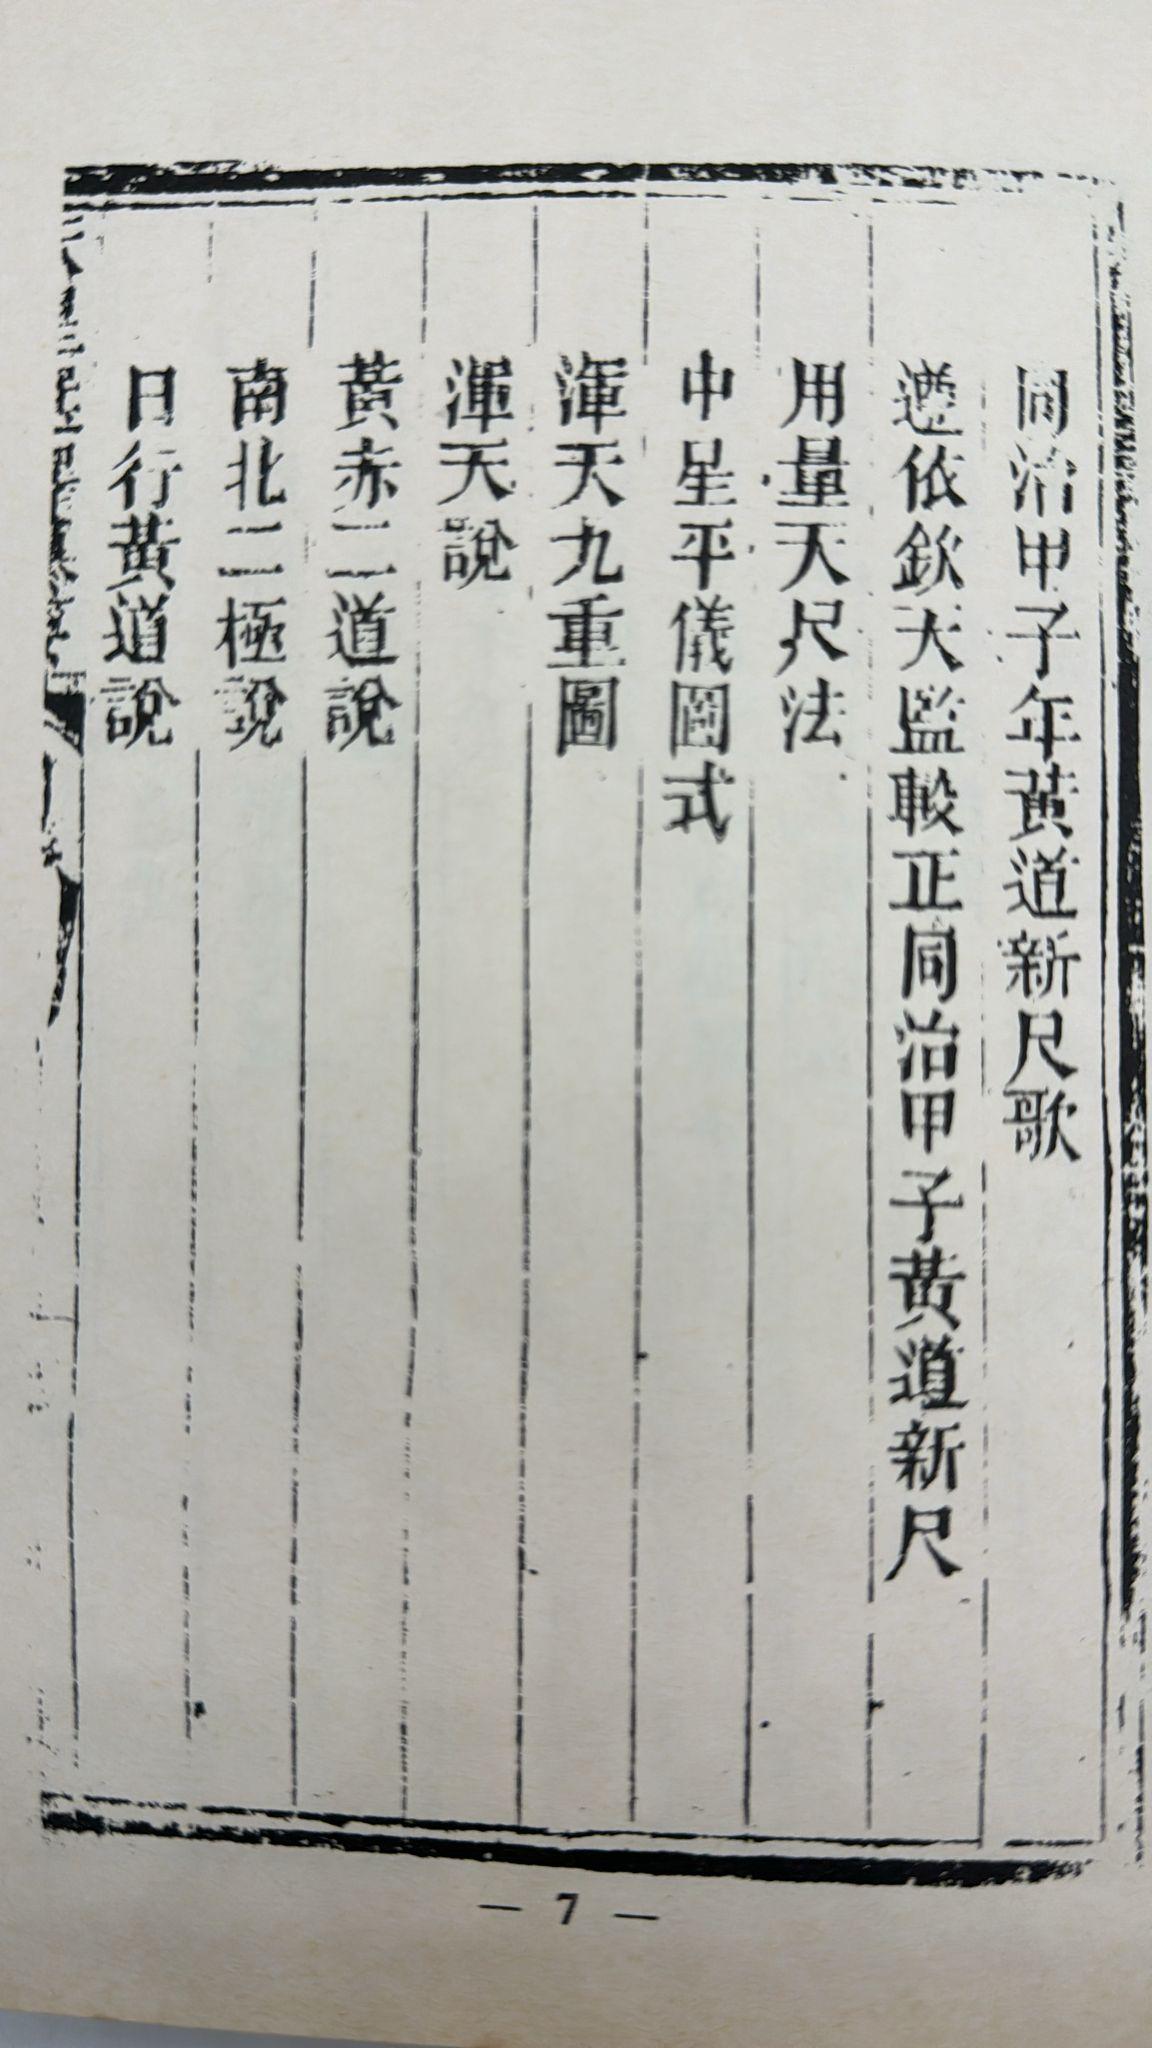 同治甲子年黃道新尺歌
遵依欽天監較正同治甲子黃道新尺
用量天尺法
中星平儀圖式
渾天九重圖
渾天說
黃赤二道說
南北二極說
日行黃道說
— 7 —